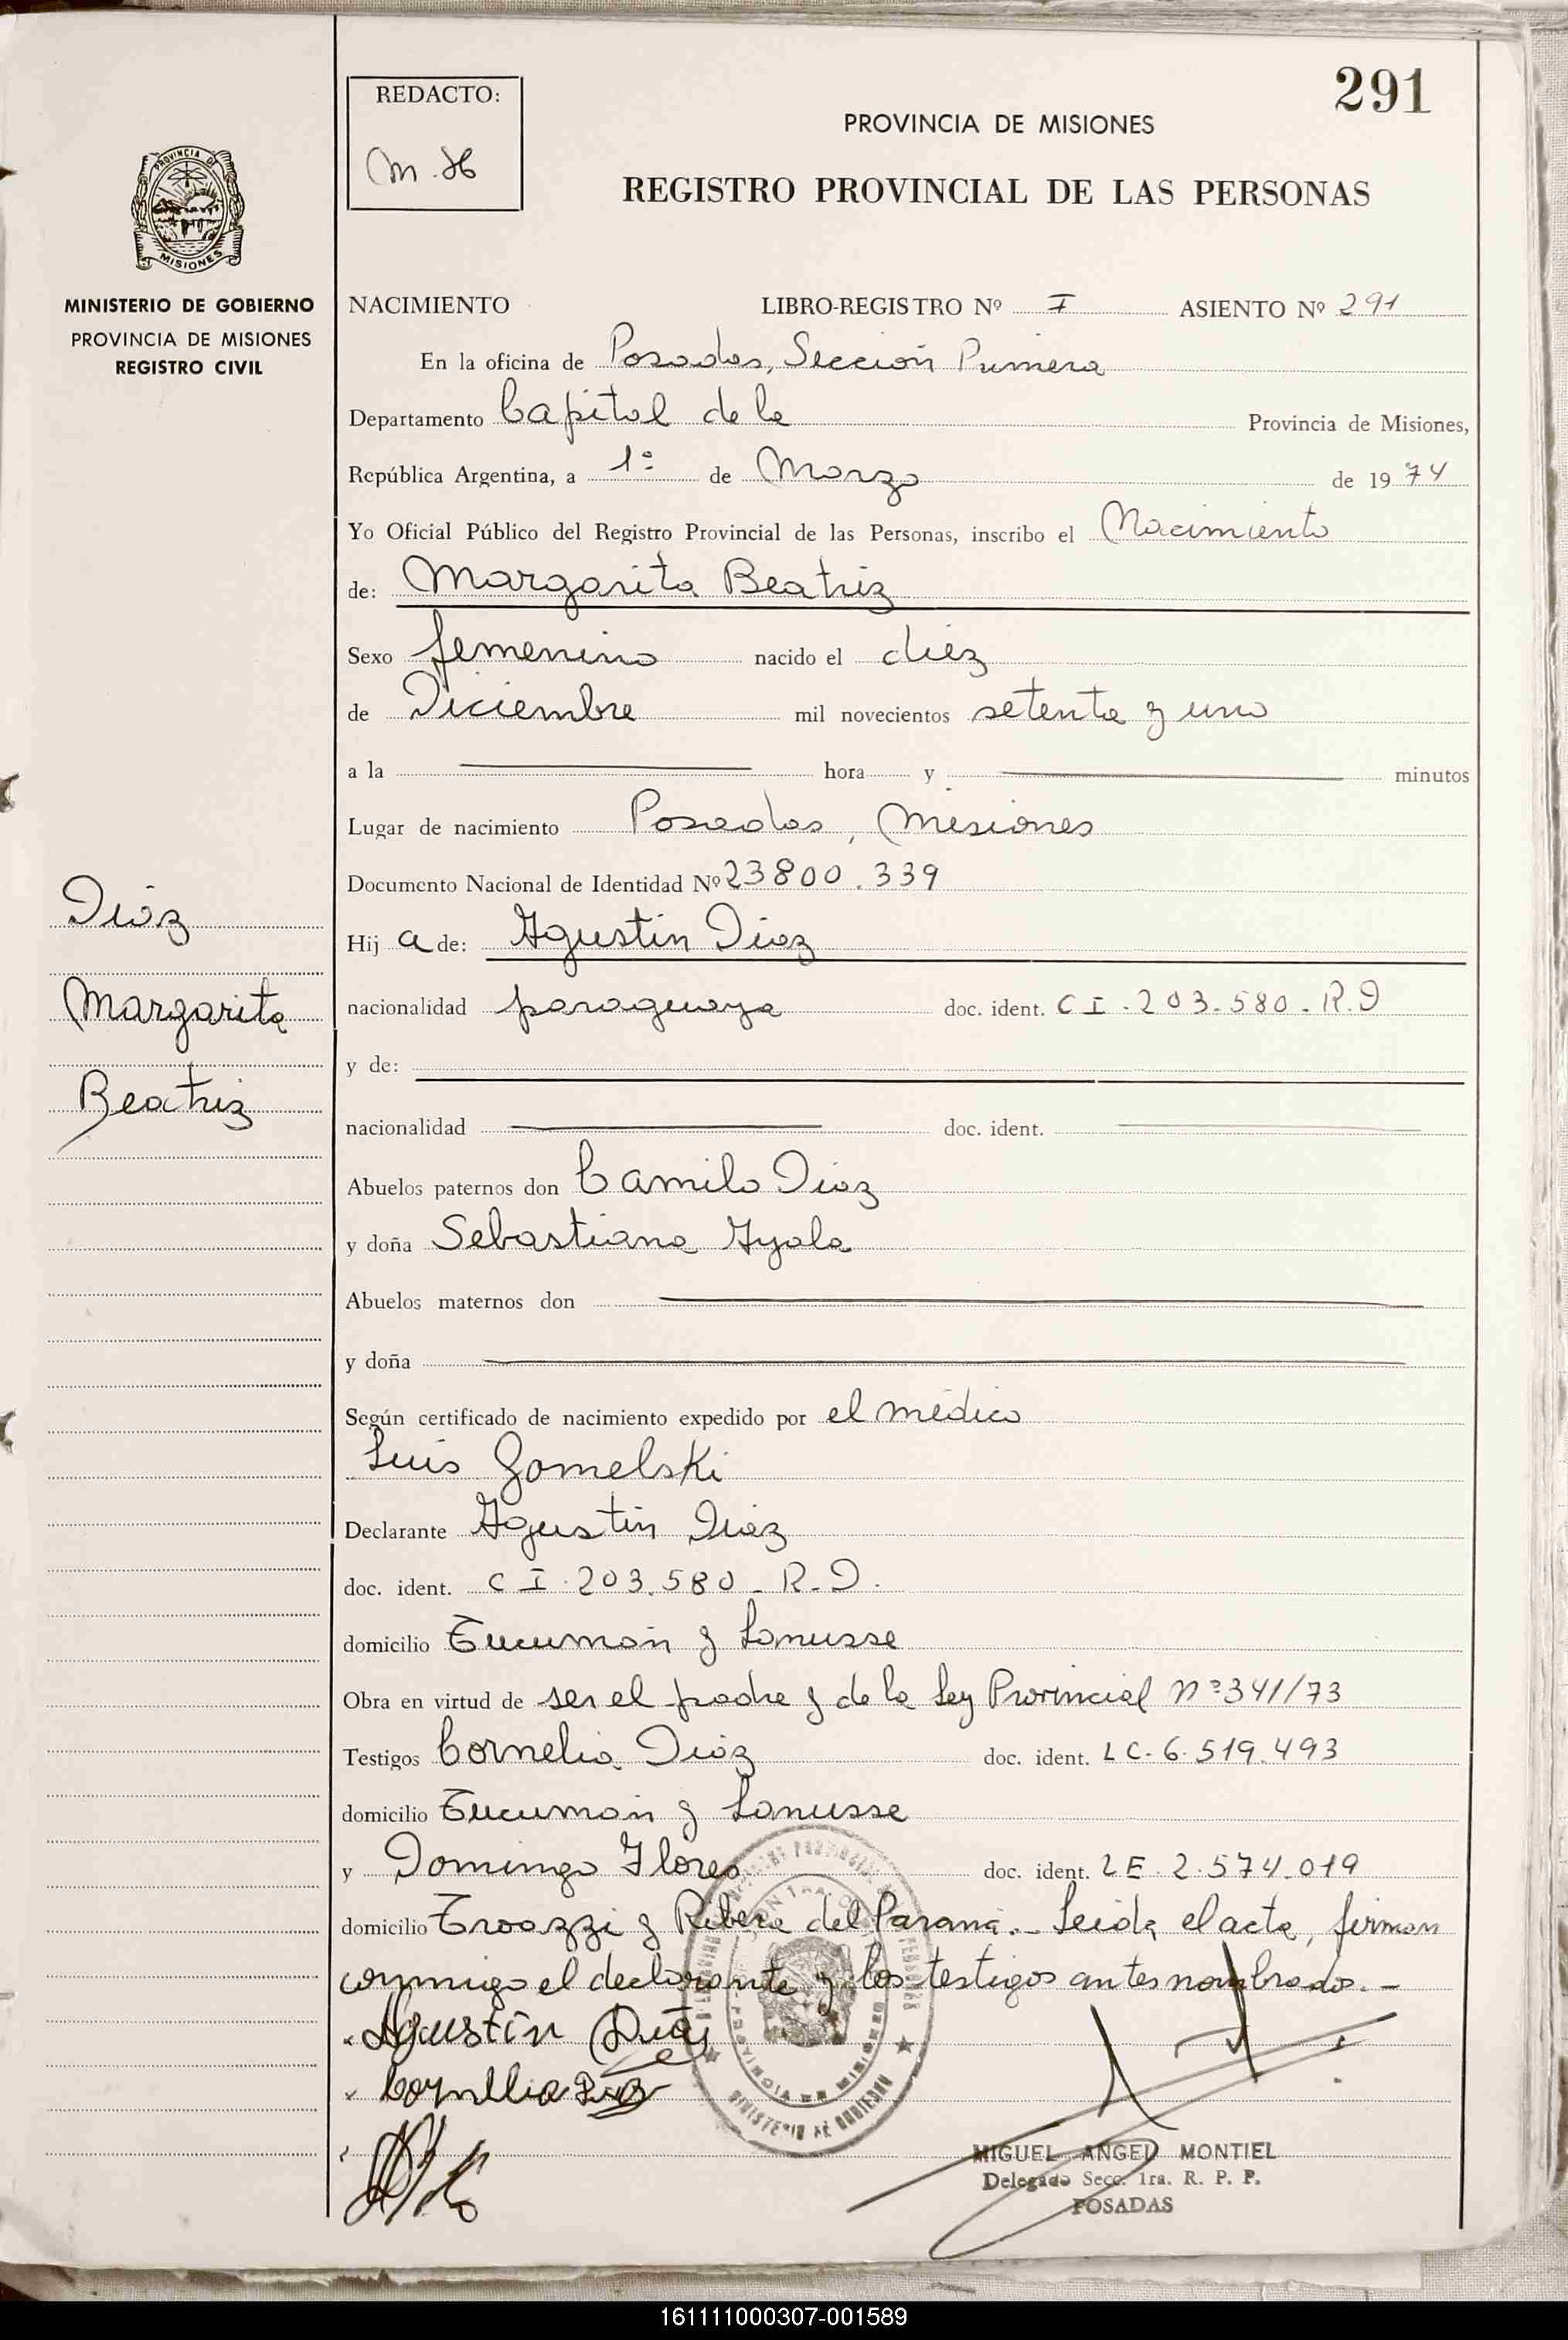 291
REDACTO:
M.H
PROVINCIA DE MISIONES
REGISTRO PROVINCIAL DE LAS PERSONAS
PROVINCIA DE
MISIONES
MINISTERIO DE GOBIERNO
PROVINCIA DE MISIONES
REGISTRO CIVIL
NACIMIENTO LIBRO-REGISTRO Nº I ASIENTO Nº 291
En la oficina de Posadas, Sección Primera
Departamento Capital de la Provincia de Misiones,
República Argentina, a 1º de Marzo de 1974
Yo Oficial Público del Registro Provincial de las Personas, inscribo el Nacimiento
de: Margarita Beatriz
Sexo femenino nacido el diez
de Diciembre mil novecientos setenta y uno
a la hora y minutos
Lugar de nacimiento Posadas, Misiones
Documento Nacional de Identidad Nº 23800.339
Díaz
Margarita
Beatriz
Hija de: Agustín Díaz
nacionalidad paraguaya doc. ident. C I. 203.580. R.D
y de:
nacionalidad doc. ident.
Abuelos paternos don Camilo Díaz
y doña Sebastiana Ayala
Abuelos maternos don
y doña
Según certificado de nacimiento expedido por el médico
Luis Gomelski
Declarante Agustín Díaz
doc. ident. C I. 203.580 - R.D.
domicilio Tucumán y Lanusse
Obra en virtud de ser el padre y de la Ley Provincial nº 341/73
Testigos Cornelia Díaz doc. ident. LC. 6.519.493
domicilio Tucumán y Lanusse
y Domingo Flores doc. ident. LE. 2.574.019
domicilio y Ribera del Paraná.- Leida el acta, firman
conmigo el declarante y los testigos antes nombrado.-
Agustín Díaz
Cornelia Díaz
PROVINCIA DE MISIONES
MINISTERIO DE GOBIERNO
MIGUEL ANGEL MONTIEL
Delegado Secc. 1ra. R. P. P.
POSADAS
161111000307-001589